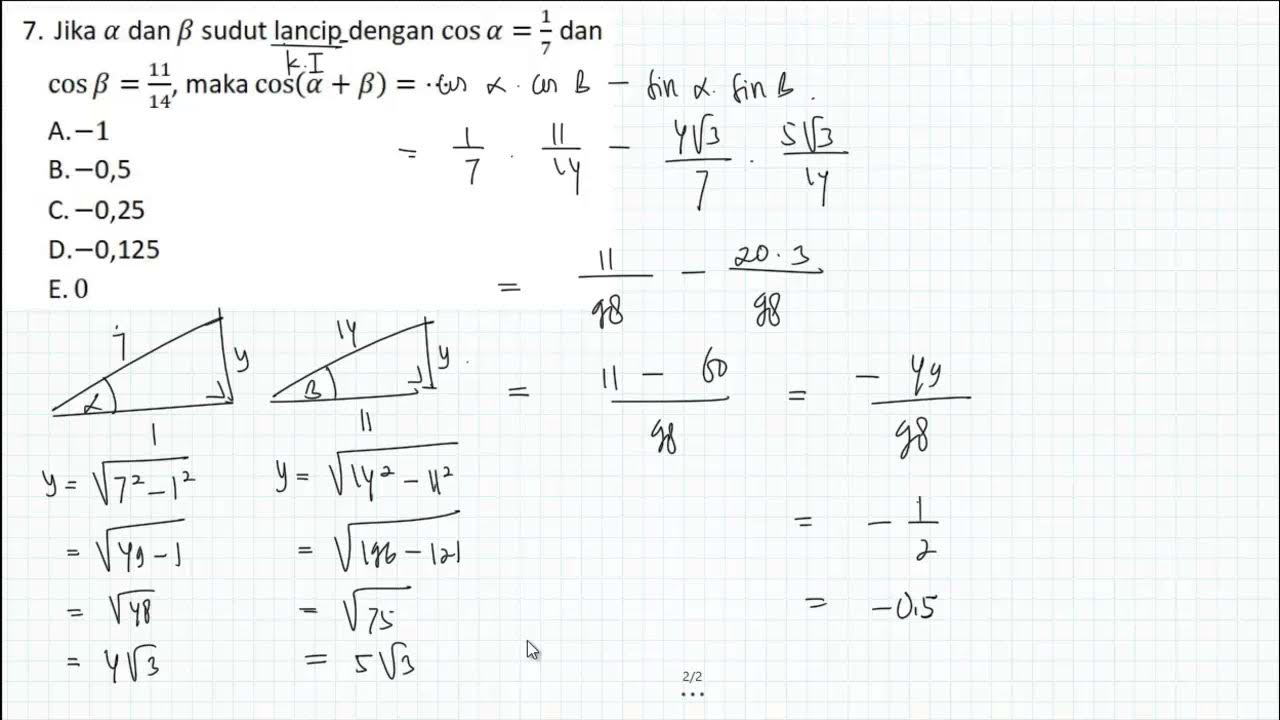 7. Jika α dan β sudut lancip dengan cos α = 1/7 dan
k.I
cos β = 11/14, maka cos(α + β) = cos α . cos B − sin α. sin B.
A. −1
B. −0,5
C. −0,25
D. −0,125
E. 0
= 1/7 . 11/14 − 4√3/7 . 5√3/14
= 11/98 − 20.3/98
= 11 − 60/98 = − 49/98
= − 1/2
= −0.5
7 y α 1
y = √7² − 1²
= √49 − 1
= √48
= 4√3
14 y B 11
y = √14² − 11²
= √196 − 121
= √75
= 5√3
2/2